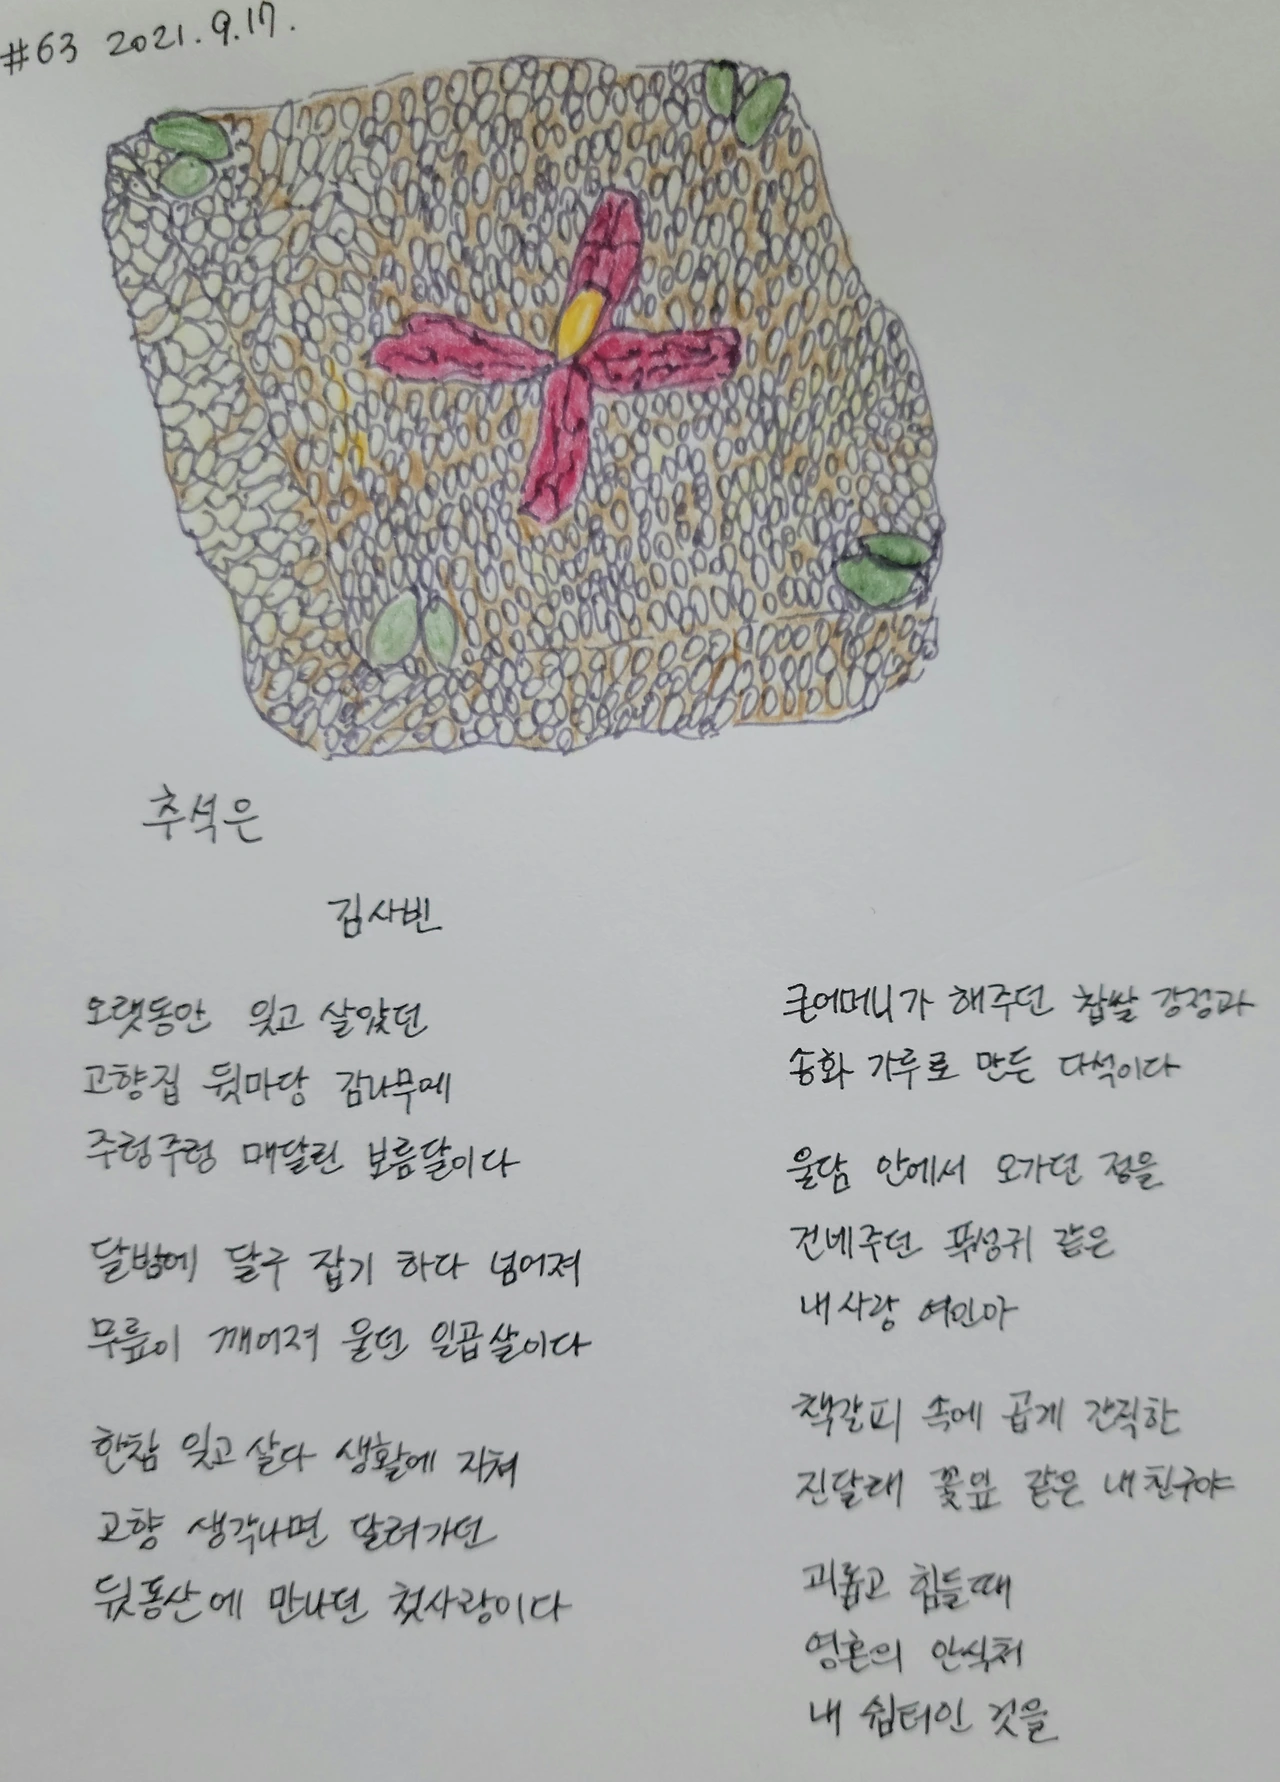 #63 2021.9.17.
추석은
김사빈
오랫동안 잊고 살았던
고향집 뒷마당 감나무에
주렁주렁 매달린 보름달이다
달밤에 달구 잡기 하다 넘어져
무릎이 깨어져 울던 일곱살이다
한참 잊고 살다 생활에 지쳐
고향 생각나면 달려가던
뒷동산에 만나던 첫사랑이다
큰어머니가 해주던 찹쌀 강정과
송화 가루로 만든 다석이다
울담 안에서 오가던 정을
건네주던 푸성귀 같은
내 사랑 여인아
책갈피 속에 곱게 간직한
진달래 꽃잎 같은 내 친구야
괴롭고 힘들때
영혼의 안식처
내 쉼터인 것을